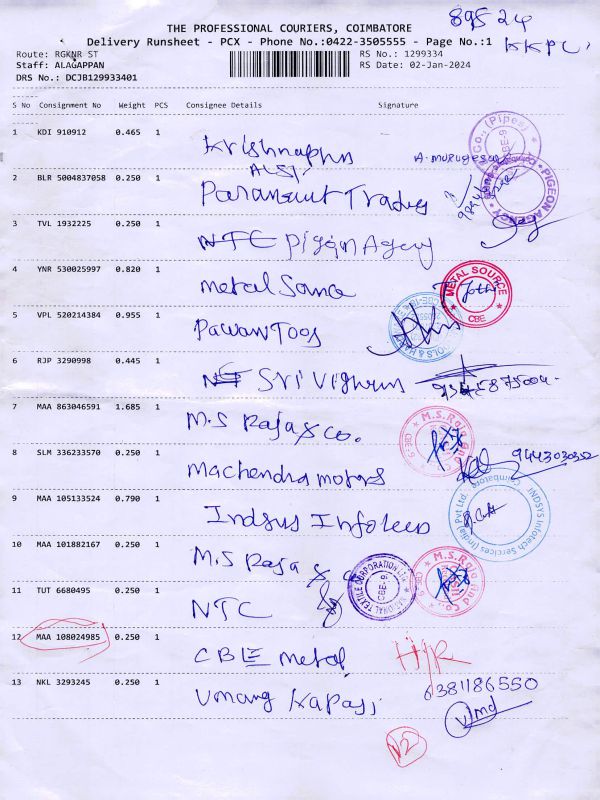 THE PROFESSIONAL COURIERS, COIMBATORE
Delivery Runsheet - PCX - Phone No.:0422-3505555 - Page No.:1
Route: RGKNR ST
RS No.: 1299334
Staff: ALAGAPPAN
RS Date: 02-Jan-2024
DRS No.: DCJB129933401
8952 24
KKPC
S No Consignment No Weight PCS Consignee Details Signature
1 KDI 910912 0.465 1 A. murugesan
2 BLR 5004837058 0.250 1 Paramount Trades
3 TVL 1932225 0.250 1 NTC pigeon Agency
PIGEON AGENCY
4 YNR 530025997 0.820 1 metal Source
METAL SOURCE CBE
5 VPL 520214384 0.955 1 Pawan Toos
6 RJP 3290998 0.445 1 Sri Vignesh
7 MAA 863046591 1.685 1 M.S Raja & co.
M.S.Raja And
8 SLM 336233570 0.250 1 Machendra motors 9443030352
9 MAA 105133524 0.790 1 Indsys Infotech
INDSYS Infotech Services (India) Pvt Ltd. Coimbatore
10 MAA 101882167 0.250 1 M.S Raja &
M.S.Raja And
11 TUT 6680495 0.250 1 NTC
NATIONAL TEXTILE CORPORATION Ltd. CBE-9
12 MAA 108024985 0.250 1 CBE metal
13 NKL 3293245 0.250 1 Umang Kapasi 6381186550
12